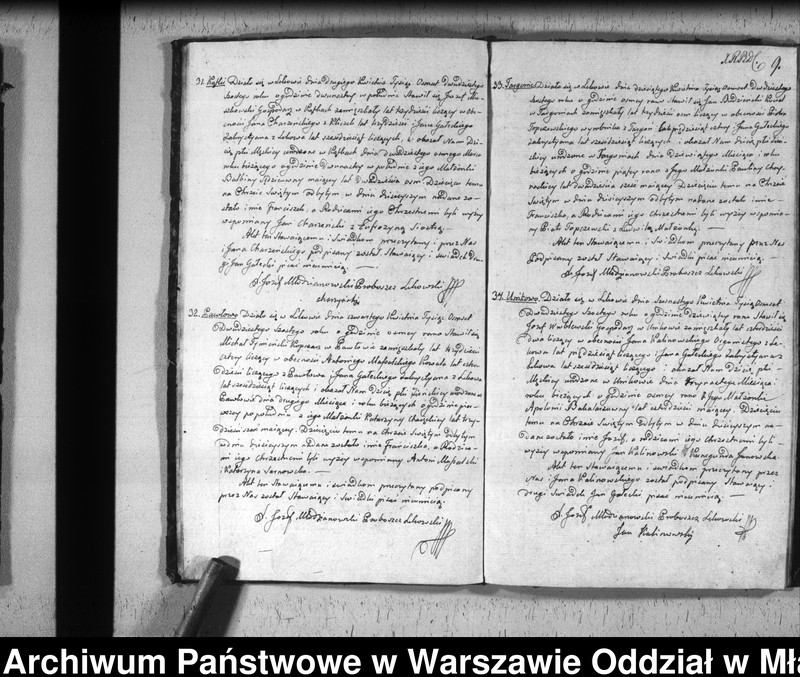 31. Działo się w Lekowie Dnia drugiego Kwietnia Tysiąc Osmset Dwudziestego
szostego roku o godzinie dwunastey w południe Stawił się Jozef
Gospodarz w zamieszkały lat trzydzieści liczący w obe-
cności Jana z lat trzydzieści i Jana Gałeckiego
Zakrystyana z Lekowa lat szesdziesiąt liczących, i okazał Nam Dzie-
cię płci Męskiey urodzone w Dnia dwudziestego osmego Marca
roku bieżącego o godzinie w południe z iego Małżonki
Balbiny maiącey lat dwadzieścia osm. Dziecięciu temu
na Chrzcie Swiętym odbytym w dniu dzisieyszym nadane zo-
stało imie Franciszek, a Rodzicami iego Chrzestnemi byli wyżey
wspomniany Jan z
Akt ten Stawaiącemu i Swiadkom przeczytany i przez Nas
i Jana podpisany został, Stawaiący i Swiadek dru-
gi Jan Gałecki pisać nieumieią.
X. Jozef Młodzianowski Proboszcz Lekowski
32. Pawłowo. Działo się w Lekowie Dnia czwartego Kwietnia Tysiąc Osmset
Dwudziestego Szostego roku o godzinie osmey rano Stawił się
Michał w Pawłowie zamieszkały lat trzydzieści
cztery liczący w obecności Antoniego Kowala lat czter-
dzieści liczącego z Pawłowa i Jana Gałeckiego Zakrystyana z Lekowa
lat szesdziesiąt liczących i okazał Nam Dziecię płci żeńskiey urodzone w
Pawłowie dnia drugiego Miesiąca i roku bieżących o godzinie pier-
wszey popołudniu z iego Małżonki Katarzyny lat trzy-
dzieści maiącey. Dziecięciu temu na Chrzcie Swiętym odbytym
w dniu dzisieyszym nadane zostało imie Franciszka, a Rodzica-
mi iego Chrzestnemi byli wyżey wspomniany Antoni
i Katarzyna Sarnowska.
Akt ten Stawaiącemu i swiadkom przeczytany podpisany
przez Nas został Stawaiący i Swiadki pisać nieumieią.
X. Jozef Młodzianowski Proboszcz Lekowski
9.
33. Targonie Działo się w Lekowie dnia dziesiątego Kwietnia Tysiąc Osmset Dwudziestego
szostego roku o godzinie osmey rano Stawił się Jan
w Targoniach zamieszkały lat trzydzieści osm liczący w obecności Piotra
wyrobnika z Targoń lat pięćdziesiąt cztery i Jana Gałeckiego
zakrystyana lat szesdziesiąt liczących, i okazał Nam dziecię płci żeń-
skiey urodzone w Targoniach Dnia dziewiątego Miesiąca i roku
bieżących o godzinie piątey rano z Jego Małżonki Pauliny
lat dwadzieścia szesc maiącey Dziecięciu temu na Chrzcie
Swiętym w dniu dzisieyszym odbytym nadane zostało imie
Franciszka, a Rodzicami iego chrzestnemi byli wyżey wspomnia-
ny Piotr z Małżonką.
Akt ten Stawaiącemu i Swiadkom przeczytany przez Nas
Podpisany został Stawaiący i Swiadki pisać nieumieią.
X. Jozef Młodzianowski Proboszcz Lekowski
34. Unikowo. Działo się w Lekowie Dnia Kwietnia Tysiąc Osmset
Dwudziestego Szostego roku o godzinie dziewiątey rano Stawił się
Jozef Wróblewski Gospodarz w Unikowie zamieszkały lat czterdzieści
dwa liczący w obecności Jana Kalinowskiego Organisty z Le-
kowa lat liczącego i Jana Gałeckiego zakrystyana z
Lekowa lat szesdziesiąt liczącego i okazał Nam dziecię płci
Męskiey urodzone w Unikowie Dnia Trzynastego Miesiąca i
roku bieżących o godzinie osmey rano z Jego Małżonki
Apolonii lat czterdzieści maiącey Dziecięciu
temu na Chrzcie Swiętym odbytym w dniu dzisieyszym na-
dane zostało imie Jozef, a rodzicami iego chrzestnemi byli
wyżey wspomniany Jan Kalinowski i Kunegunda Janowska.
Akt ten Stawaiącemu i swiadkom przeczytany przez
Nas i Jana Kalinowskiego został podpisany Stawaiący i
drugi swiadek Jan Gałecki pisać nieumieią.
X. Jozef Młodzianowski Proboszcz Lekowski
Jan Kalinowski
Archiwum Państwowe w Warszawie Oddział w Mła